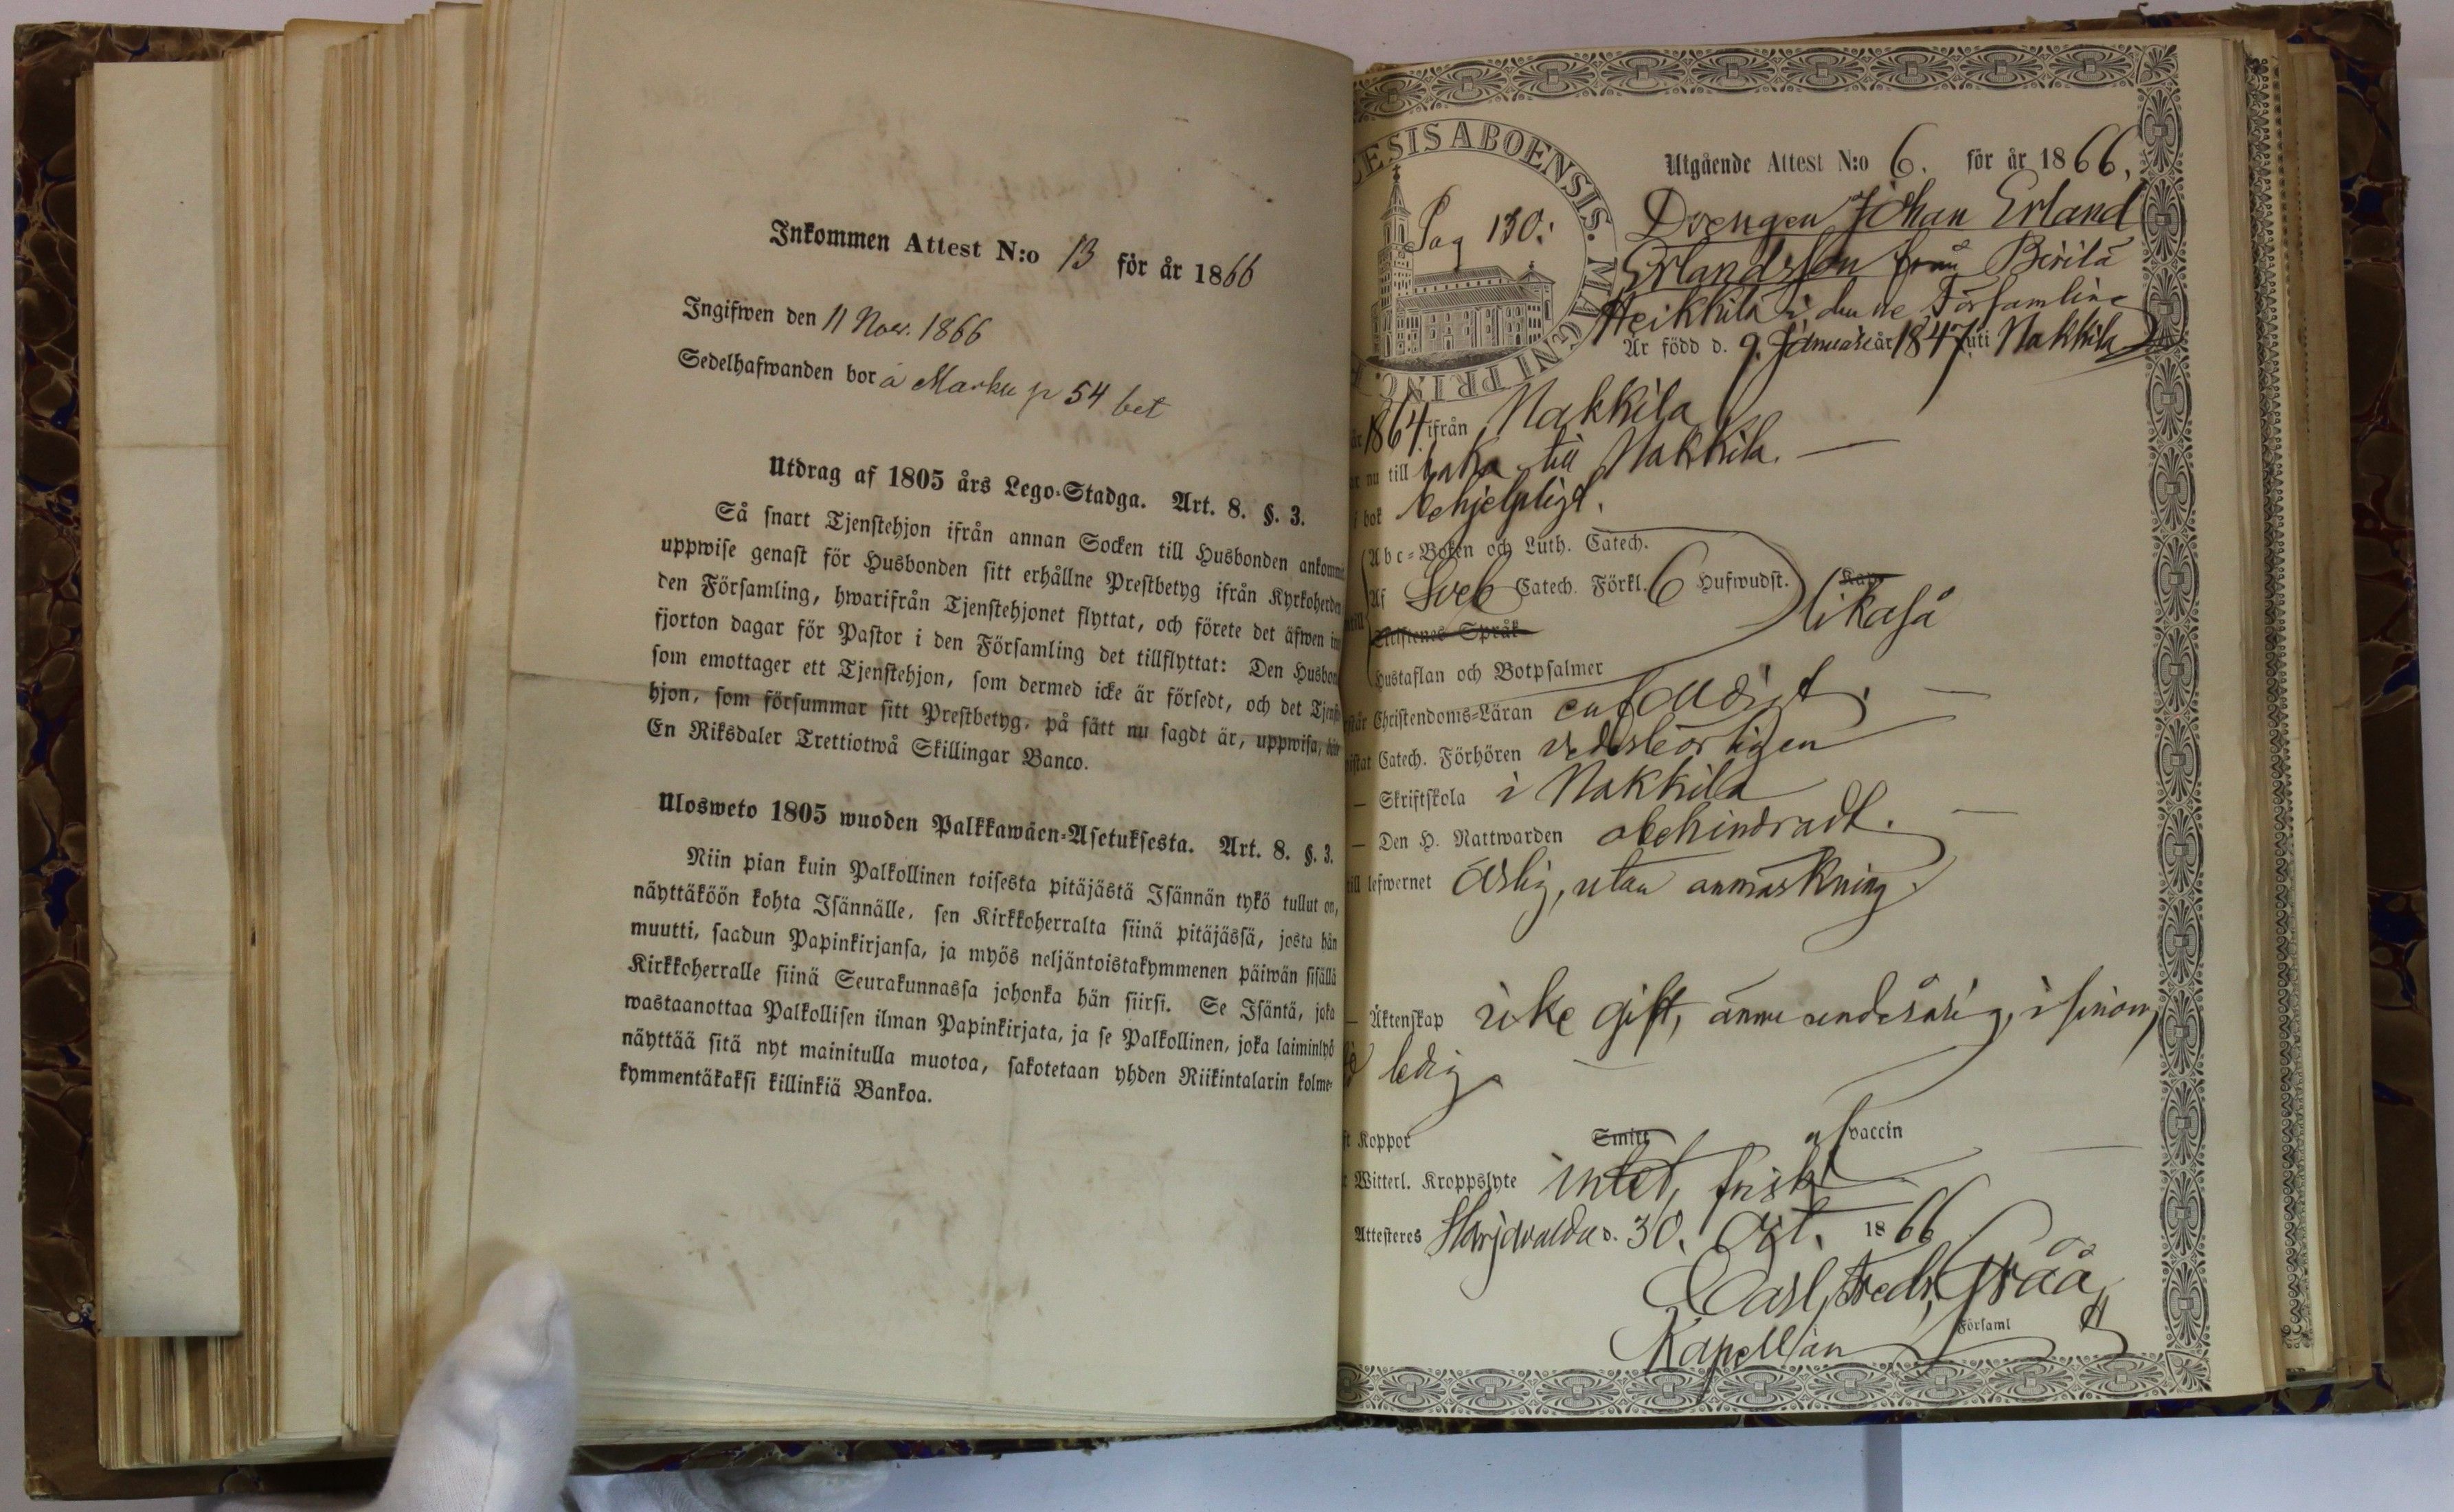 Inkommen Attest N:o 13 för år 1866
Ingifwen den 11 Nov. 1866
Sedelhafwanden bor å Marku p 54 bet
Utdrag af 1805 års Lego-Stadga. Art. 8. §. 3.
Så snart Tjenstehjon ifrån annan Socken till Husbonden ankommit
uppwise genast för Husbonden sitt erhållne Prestbetyg ifrån Kyrkoherden
den Församling, hwarifrån Tjenstehjonet flyttat, och förete det äfwen in
fjorton dagar för Pastor i den Församling det tillflyttat: Den Husbon
som emottager ett Tjenstehjon, som dermed icke är försedt, och det Tjenst
hjon, som försummar sitt Prestbetyg, på sätt nu sagdt är, uppwisa, bö
En Riksdaler Trettiotwå Skillingar Banco.
Ulosweto 1805 wuoden Palkkawäen-Asetuksesta. Art. 8. §. 3.
Niin pian kuin Palkollinen toisesta pitäjästä Isännän tykö tullut on,
näyttäköön kohta Isännälle, sen Kirkkoherralta siinä pitäjässä, josta hän
muutti, saadun Papinkirjansa, ja myös neljäntoistakymmenen päiwän sisällä
Kirkkoherralle siinä Seurakunnassa johonka hän siirsi. Se Isäntä, joka
wastaanottaa Palkollisen ilman Papinkirjata, ja se Palkollinen, joka laiminlyö
näyttää sitä nyt mainitulla muotoa, sakotetaan yhden Riikintalarin kolme-
kymmentäkaksi killinkiä Bankoa.
ESIS ABOENSIS. MAGNI PRINC.
Pag 130.
Utgående Attest N:o 6. för år 1866.
Drengen Johan Erland
Erlandsson från Birilä
Heikkilä i denne Församling
Är född d. 9. Januari år 1847 uti Nakkila
år 1864 ifrån Nakkila
nu till baka till Nakkila.
i bok behjelpligt.
Abc-Boken och Luth. Catech.
Af Sveb Catech. Förkl. 6 Hufwudst. Kap likaså
Athstenes Språk
Hustaflan och Botpsalmer
Christendoms-Läran enfaldigt.
Catech. Förhören vederbörligen
— Skriftskola i Nakkila
— Den H. Nattwarden obehindradt.
till lefwernet ärlig, utan anmärkning.
— Äktenskap icke gift, ännu underårig,
ledig
Koppor Smitt af vaccin
Witterl. Kroppslyte intet, frisk
Attesteres Harjavalda d. 30. Oct. 1866
Carl Fredr. Gråå
Kapellan Församl